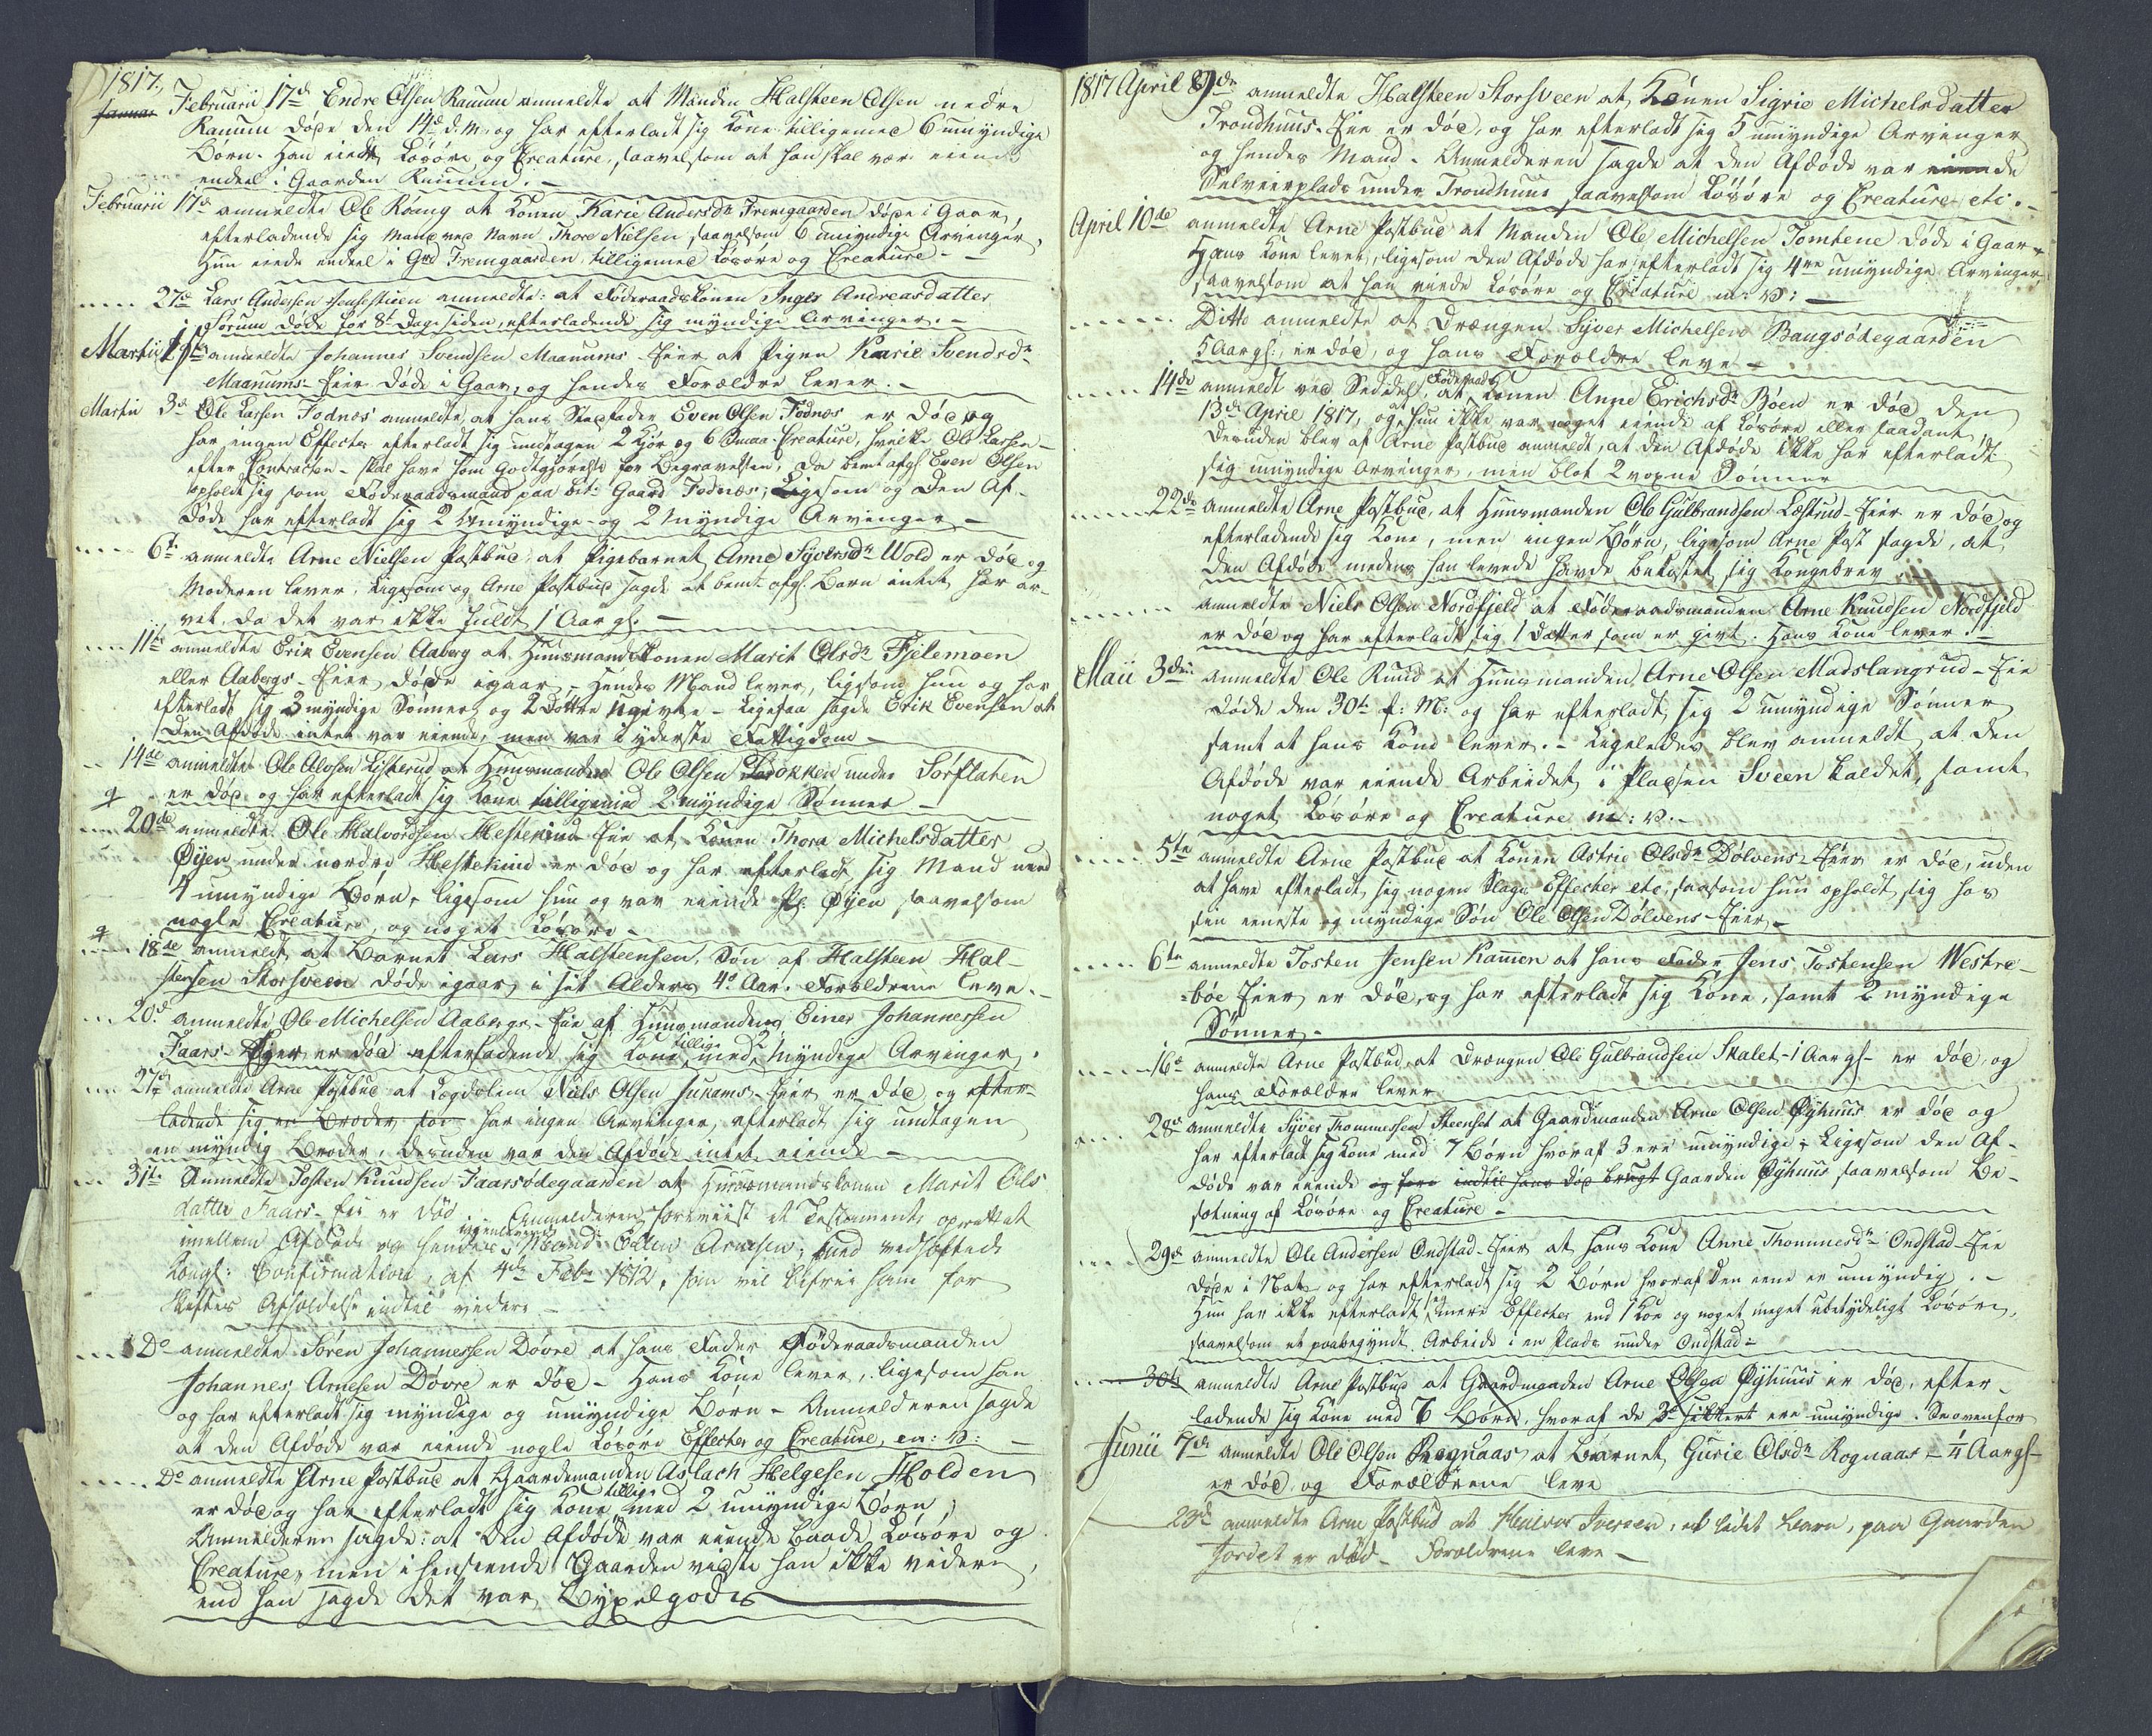 1817.
Januar Februarii 17d Endre Olsen Ranum anmeldte at Manden Halsteen Olsen nedre
Ranum døde den 14d d. M. og har efterladt sig Kone tilligemed 6 umyndige
Børn. Han eiede Løsøre og Creature, saavelsom at han skal være eiende
endeel i Gaarden Ranum. –
Februarii 17d anmeldte Ole Röang at Konen Karie Andersdr Fremgaarden døde i Gaar,
efterladende sig Mand ved Navn Thore Nielsen saavelsom 6 umyndige Arvinger,
Hun eiede endeel i Grd Fremgaarden tilligemed Løsøre og Creature –
27d Lars Andersen anmeldte: at Føderaadskonen Inger Andreasdatter
Sorum døde for 8t Dage siden, efterladende sig myndige Arvinger. –
Martii 1ste anmeldte Johannes Svendsen Maanums-Eier at Pigen Karie Svendsdr
Maanums-Eier døde i Gaar, og hendes Forældre lever. –
Martii 3d Ole Larsen Fodnæs anmeldte, at hans Stedfader Even Olsen Fodnæs er død og
har ingen Effecter efterladt sig undtagen 2 Kjør og 6 Smaa-Creature, hvilke Ole Larsen
efter Contracten skal have som Godtgjørelse for Begravelsen, da bemt afg. Even Olsen
opholdt sig som Føderaadsmand paa bte Gaard Fodnæs; Ligesom og den Af-
døde har efterladt sig 2 Umyndige og 2 Myndige Arvinger –
6te anmeldte Arne Nielsen Postbud at Pigebarnet Anne Syversdr Wold er død og
Moderen lever. Ligesom og Arne Postbud sagde at bemte afg. Barn intet har ar-
vet, da det var ikke fuldt 1 Aar gl. –
11te anmeldte Erik Evensen Aaberg at Huusmandskonen Marit Olsdr Fjelemoen
eller Aabergs-Eier døde igaar, – Hendes Mand lever, ligesom hun og har
efterladt sig 3 myndige Sønner og 2 Døttre Ugivte – Ligesaa sagde Erik Evensen at
den Afdøde intet var eiende, men var i yderste Fattigdom –
14de anmeldte Ole Alosen Listerud at Huusmanden Ole Olsen Brokken under Sørflaten
er død og har efterladt sig Kone tilligemed 2 myndige Sønner –
20de anmeldte Ole Halvordsen Hestekind Eie at Konen Thora Michelsdatter
Øyen under nordre Hestekind er død og har efterladt sig Mand med
4 umyndige Børn, ligesom hun og var eiende Pl. Øyen saavelsom
nogle Creature, og noget Løsøre –
18de anmeldt at Barnet Lars Halsteensen, Søn af Halsteen Hal-
stensen Storsveen døde igaar, i sit Alders 4de Aar. Forældrene leve. –
20d anmeldte Ole Michelsen Aabergs-Eie af Huusmanden Einer Johannessen
Faars-Eier er død efterladende sig Kone tillige med 2 Myndige Arvinger.
27d anmeldte Arne Postbud at Lægdslem Niels Olsen Juvams-Eier er død og efter-
ladende sig en Broder, som har ingen Arvinger, efterladt sig undtagen
en myndig Broder, desuden var den Afdøde intet eiende –
31te Anmeldte Tosten Knudsen Faarsødegaarden at Huusmandskonen Marit Ols-
datter Faars-Eie er død. Anmelderen foreviist et Testamente oprettet
imellem Afdøde og hendes igjenlevende Mand Edlen Arnesen, med vedhæftede
Kongl: Confirmation, af 4de Febr 1812, som vil befrie ham for
Skiftes Afholdelse indtil videre –
Do anmeldte Søren Johannessen Døvre at hans Fader Føderaadsmanden
Johannes Arnesen Dövre er død – Hans Kone lever, ligesom han
og har efterladt sig myndige og umyndige Børn – Anmelderen sagde
at den Afdøde var eiende nogle Løsøre Effecter og Creature, m: v: –
Do anmeldte Arne Postbud at Gaardemanden Aslach Helgesen Holden
er død og har efterladt sig Kone tillige med 2 umyndige Børn;
Anmelderen sagde: at den Afdøde var eiende baade Løsøre og
Creature, men i henseende Gaarden vidste han ikke videre,
end han sagde det var Bygselgods
1817 April 9de anmeldte Halsteen Storsveen at Konen Sigrie Michelsdatter
Trondhuus-Eie er død, og har efterladt sig 5 umyndige Arvinger
og hendes Mand. Anmelderen sagde at den Afdøde var eiende
Selveierplads under Trondhuus saavelsom Løsøre og Creature etc. –
April 10de anmeldte Arne Postbud at Manden Ole Michelsen Tomtene døde i Gaar –
Hans Kone lever, ligesom den Afdøde har efterladt sig 4re umyndige Arvinger
saavelsom at han eiede Løsøre og Creature m: v: –
Ditto anmeldte at Drængen Syver Michelsen Baugsødegaarden
5 Aar gl:, er død, og hans Forældre leve –
14de anmeldt ved Seddel, at Føderaads Konen Anne Erichsdr Bøen er død den
13de April 1817, og at hun ikke var noget eiende af Løsøre eller saadant,
desuden blev af Arne Postbud anmeldt, at den Afdøde ikke har efterladt
sig umyndige Arvinger, men blot 2 voxne Sønner
22de anmeldte Arne Postbud, at Huusmanden Ole Gulbrandsen Læstrud-Eier er død og
efterladende sig Kone, men ingen Børn, ligesom Arne Post sagde, at
den Afdøde medens han levede havde bekostet sig Kongebrev
anmeldte Niels Olsen Nordfjeld at Føderaadsmanden Arne Knudsen Nordfjeld
er død og har efterladt sig 1 Datter som er givt. Hans Kone lever. –
Maii 3die anmeldte Ole Ruud at Huusmanden Arne Olsen Madslangrud-Eie
døde den 30te f: M: og har efterladt sig 2 umyndige Sønner
samt at hans Kone lever. – Ligeledes blev anmeldt at den
Afdøde var eiende Arbeidet i Pladsen Sveen kaldet, samt
noget Løsøre og Creature m: v. –
5te anmeldte Arne Postbud at Konen Astrie Olsdr Dölvens-Eier er død, uden
at have efterladt sig nogen Slags Effecter etc, saasom hun opholdt sig hos
sin eeneste og myndige Søn Ole Olsen Dölvens-Eier –
6te anmeldte Tosten Jensen Rammen at hans Fader Jens Tostensen Westre-
-böe Eier er død, og har efterladt sig Kone, samt 2 myndige
Sønner –
16d anmeldte Arne Postbud, at Drængen Ole Gulbrandsen Skalet – 1 Aar gl – er død, og
hans Forældre lever
28d anmeldte Syver Thommessen Steenset at Gaardmanden Arne Olsen Øyhuus er død og
har efterladt sig Kone med 7 Børn hvoraf 3 ere umyndige – Ligesom den Af-
døde var eiende og hans indtil hans død brugt Gaarden Øyhuus saavelsom Be-
sætning af Løsøre og Creature –
29d anmeldte Ole Andersen Ondstad-Eier at hans Kone Anne Thommesdr Ondstad-Eie
døde i Nat, og har efterladt sig 2 Børn hvoraf den eene er umyndig. –
Hun har ikke efterladt sig mere Effecter end 1 Koe og noget meget ubetydeligt Løsøre,
saavelsom et paabegyndt Arbeide i en Plads under Ondstad –
30te anmeldte Arne Postbud at Gaardmanden Arne Olsen Øyhuus er død, efter-
ladende sig Kone med 7 Børn, hvoraf de 3de sikkert ere umyndige. Se ovenfor
Junii 7de anmeldte Ole Olsen Rognaas, at Barnet Gurie Olsdr Rognaas – 1/4 Aar gl –
er død, og Forældrene leve
23de anmeldte Arne Postbud at Iversen, et lidet Barn, paa Gaarden
Jordet er død – Forældrene leve –